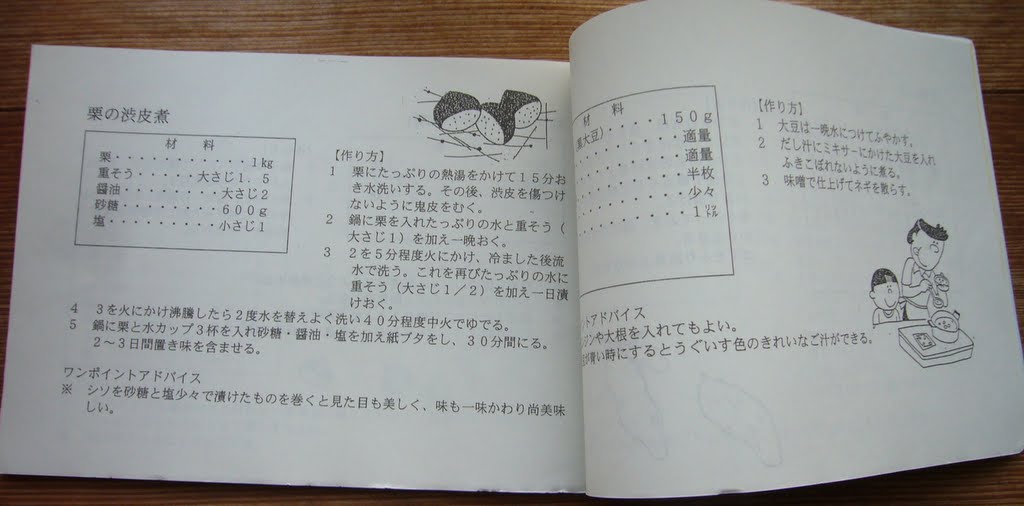 栗の渋皮煮
材　料
栗・・・・・・・・・・・・１㎏
重そう・・・・・大さじ１．５
醤油・・・・・・・・大さじ２
砂糖・・・・・・・・６００ｇ
塩・・・・・・・・・・小さじ１
【作り方】
１　栗にたっぷりの熱湯をかけて１５分お
き水洗いする。その後、渋皮を傷つけ
ないように鬼皮をむく。
２　鍋に栗を入れたっぷりの水と重そう（
大さじ１）を加え一晩おく。
３　２を５分程度火にかけ、冷ました後流
水で洗う。これを再びたっぷりの水に
重そう（大さじ１／２）を加え一日漬
けおく。
４　３を火にかけ沸騰したら２度水を替えよく洗い４０分程度中火でゆでる。
５　鍋に栗と水カップ３杯を入れ砂糖・醤油・塩を加え紙ブタをし、３０分間にる。
２〜３日間置き味を含ませる。
ワンポイントアドバイス
※　シソを砂糖と塩少々で漬けたものを巻くと見た目も美しく、味も一味かわり尚美味
しい。
材　料
大豆）・・・・・１５０ｇ
・・・・・・・・適量
・・・・・・・・適量
・・・・・・・・半枚
・・・・・・・・少々
・・・・・・・・１㎏
【作り方】
１　大豆は一晩水につけてふやかす。
２　だし汁にミキサーにかけた大豆を入れ
ふきこぼれないように煮る。
３　味噌で仕上げてネギを散らす。
ントアドバイス
や大根を入れてもよい。
が青い時にするとうぐいす色のきれいなご汁ができる。